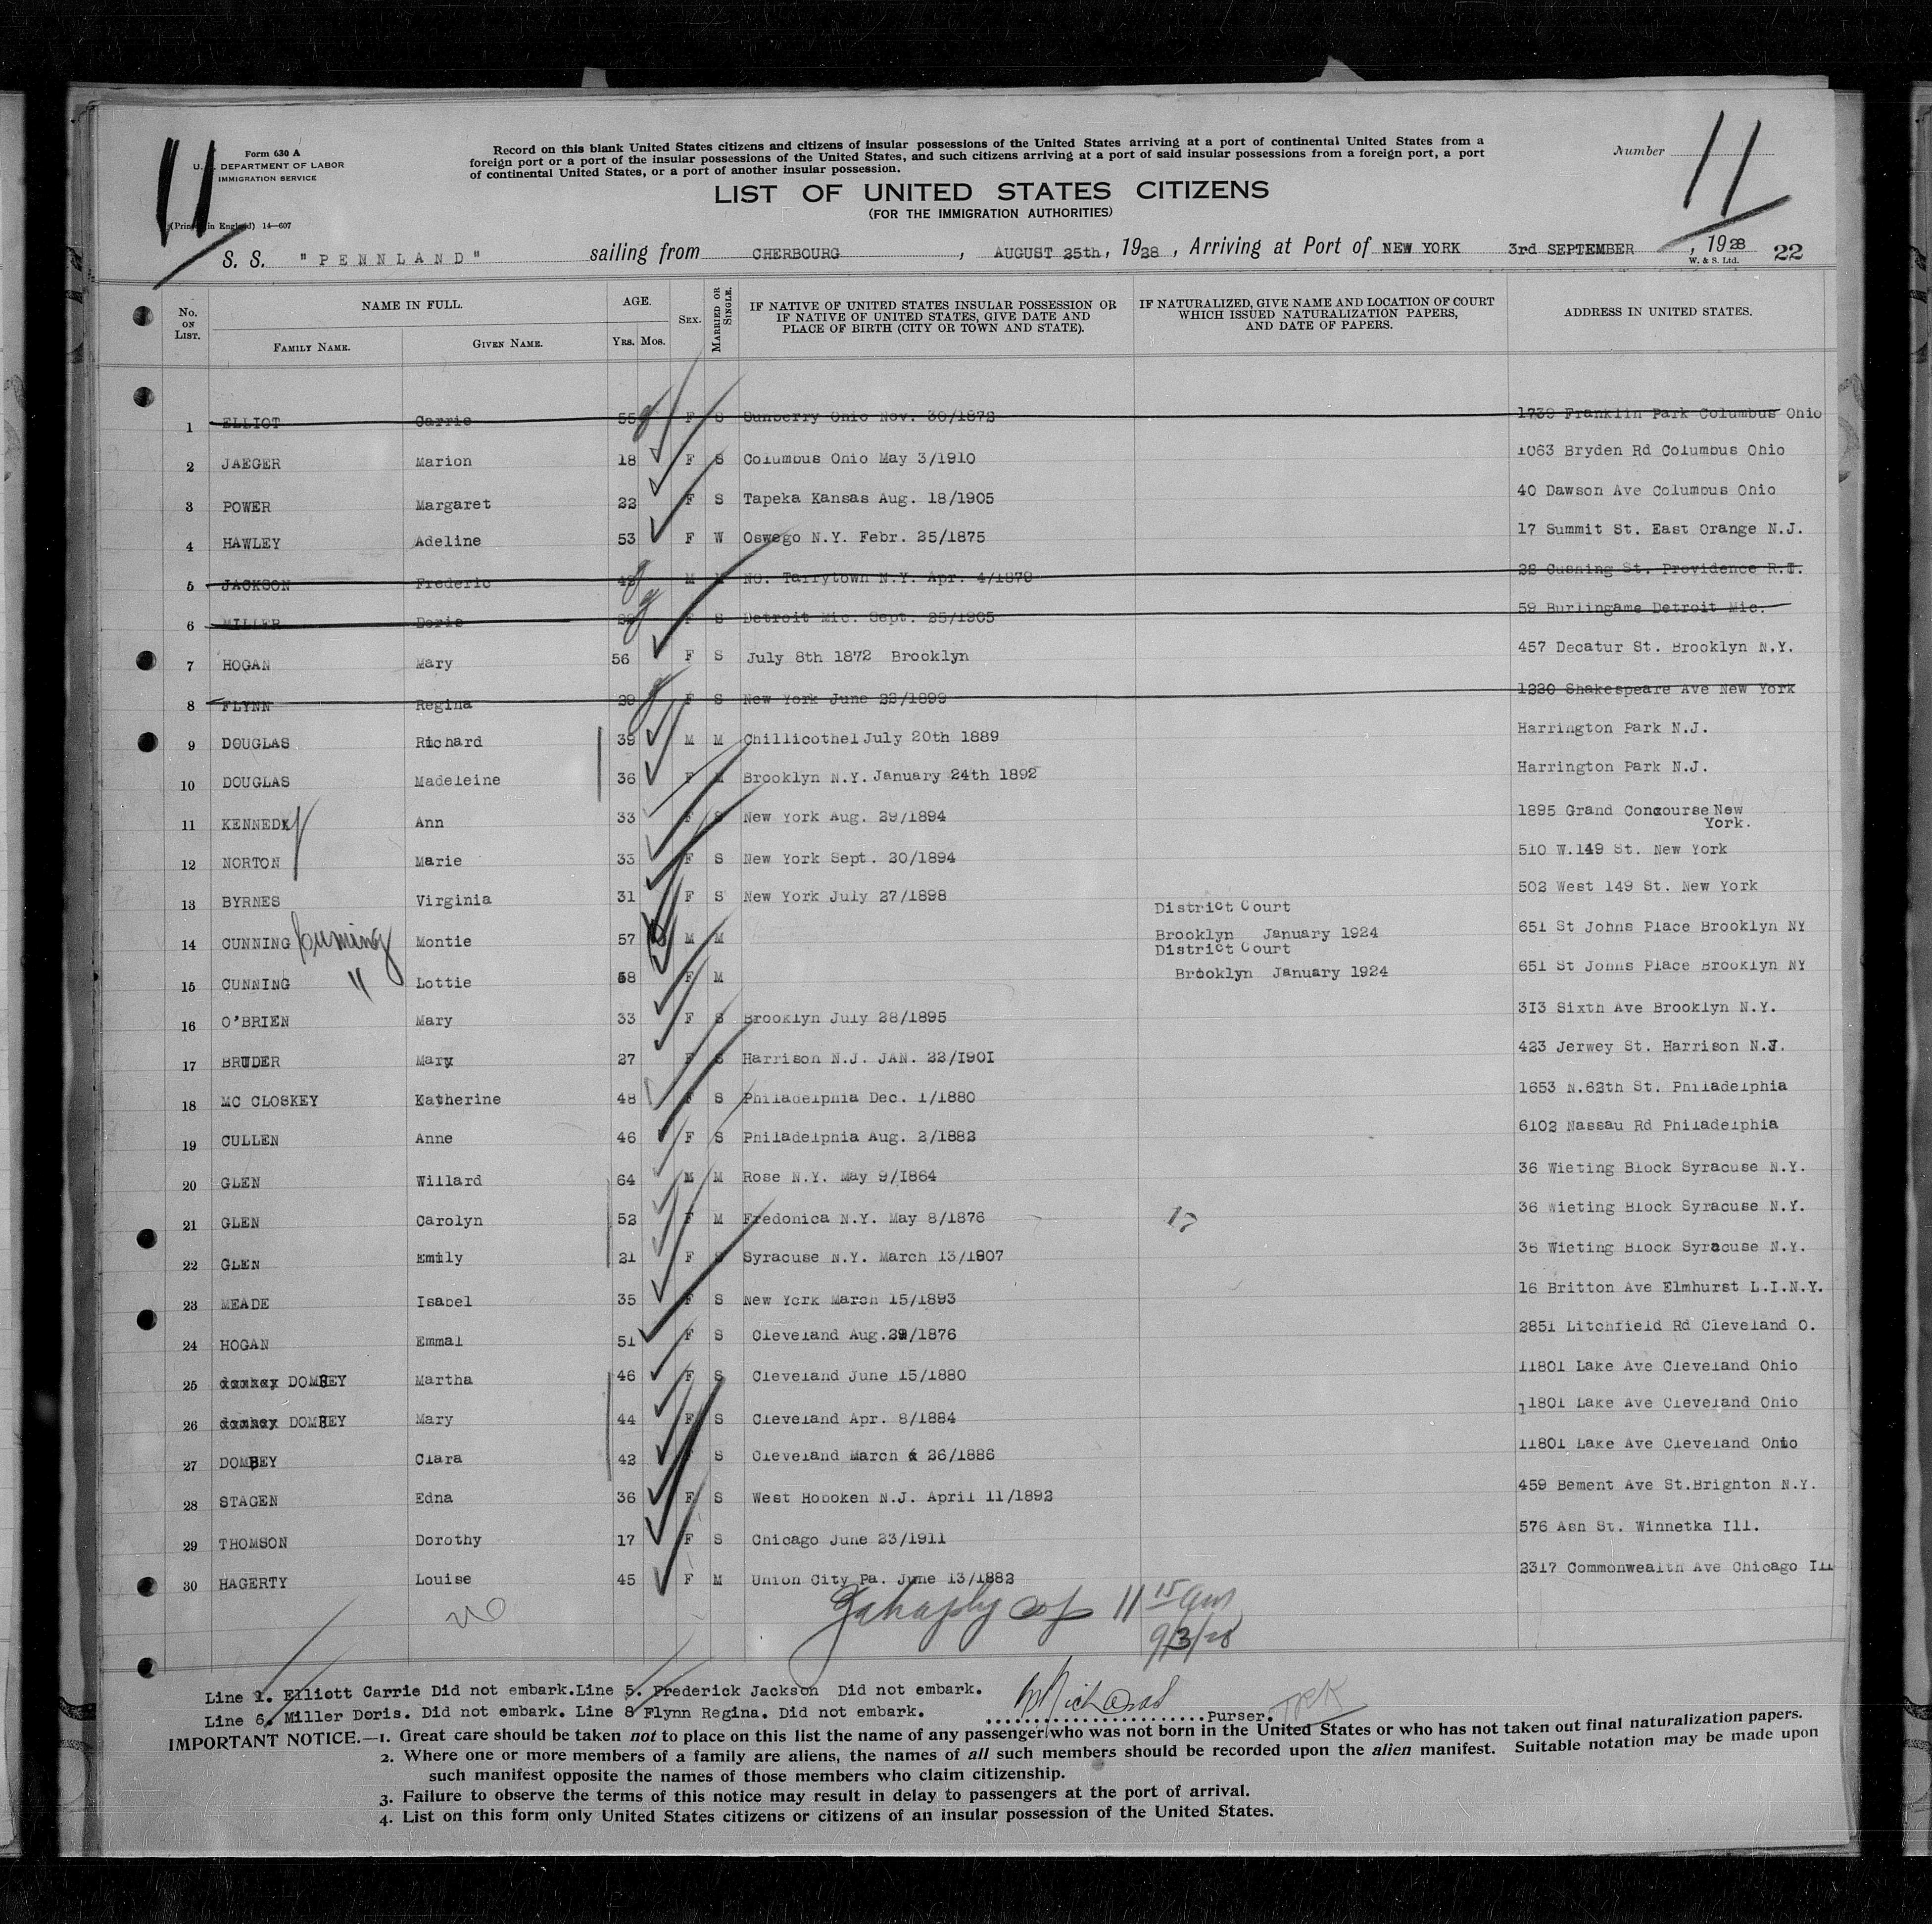 11
Form 630 A
U. S. DEPARTMENT OF LABOR
IMMIGRATION SERVICE
(Printed in England) 14—607
Record on this blank United States citizens and citizens of insular possessions of the United States arriving at a port of continental United States from a
foreign port or a port of the insular possessions of the United States, and such citizens arriving at a port of said insular possessions from a foreign port, a port
of continental United States, or a port of another insular possession.
Number 11
LIST OF UNITED STATES CITIZENS
(FOR THE IMMIGRATION AUTHORITIES)
S. S. "PENNLAND" sailing from CHERBOURG, AUGUST 25th, 1928, Arriving at Port of NEW YORK 3rd SEPTEMBER, 1928
W. & S. Ltd. 22
No. ON LIST. NAME IN FULL. AGE. SEX. MARRIED OR SINGLE. IF NATIVE OF UNITED STATES INSULAR POSSESSION OR IF NATIVE OF UNITED STATES, GIVE DATE AND PLACE OF BIRTH (CITY OR TOWN AND STATE). IF NATURALIZED, GIVE NAME AND LOCATION OF COURT WHICH ISSUED NATURALIZATION PAPERS, AND DATE OF PAPERS. ADDRESS IN UNITED STATES.
FAMILY NAME. GIVEN NAME. YRS. MOS.
1 ELLIOT Carrie 55 F S Sunberry Ohio Nov. 30/1872 1739 Franklin Park Columbus Ohio
2 JAEGER Marion 18 F S Columbus Ohio May 3/1910 1063 Bryden Rd Columbus Ohio
3 POWER Margaret 22 F S Tapeka Kansas Aug. 18/1905 40 Dawson Ave Columbus Ohio
4 HAWLEY Adeline 53 F W Oswego N.Y. Febr. 25/1875 17 Summit St. East Orange N.J.
5 JACKSON Frederic 49 M M NO. Tarrytown N.Y. Apr. 4/1879 28 Cushing St. Providence R.I.
6 MILLER Doris 22 F S Detroit Mic. Sept. 25/1905 59 Burlingame Detroit Mic.
7 HOGAN Mary 56 F S July 8th 1872 Brooklyn 457 Decatur St. Brooklyn N.Y.
8 FLYNN Regina 29 F S New York June 22/1899 1230 Shakespeare Ave New York
9 DOUGLAS Richard 39 M M Chillicothel July 20th 1889 Harrington Park N.J.
10 DOUGLAS Madeleine 36 F M Brooklyn N.Y. January 24th 1892 Harrington Park N.J.
11 KENNEDY Ann 33 F S New York Aug. 29/1894 1895 Grand Concourse New York.
12 NORTON Marie 33 F S New York Sept. 20/1894 510 W.149 St. New York
13 BYRNES Virginia 31 F S New York July 27/1898 502 West 149 St. New York
14 CUNNING Cuming Montie 57 M M District Court Brooklyn January 1924 651 St Johns Place Brooklyn NY
15 CUNNING " Lottie 58 F M District Court Brooklyn January 1924 651 St Johns Place Brooklyn NY
16 O'BRIEN Mary 33 F S Brooklyn July 28/1895 313 Sixth Ave Brooklyn N.Y.
17 BRUDER Mary 27 F S Harrison N.J. JAN. 22/1901 423 Jerwey St. Harrison N.J.
18 MC CLOSKEY Katherine 48 F S Philadelphia Dec. 1/1880 1653 N.62th St. Philadelphia
19 CULLEN Anne 46 F S Philadelphia Aug. 2/1882 6102 Nassau Rd Philadelphia
20 GLEN Willard 64 M M Rose N.Y. May 9/1864 36 Wieting Block Syracuse N.Y.
21 GLEN Carolyn 52 F M Fredonica N.Y. May 8/1876 36 Wieting Block Syracuse N.Y.
22 GLEN Emily 21 F S Syracuse N.Y. March 13/1807 36 Wieting Block Syracuse N.Y.
23 MEADE Isabel 35 F S New York March 15/1893 16 Britton Ave Elmhurst L.I.N.Y.
24 HOGAN Emmal 51 F S Cleveland Aug.29/1876 2851 Litchfield Rd Cleveland O.
25 DOMBEY Martha 46 F S Cleveland June 15/1880 11801 Lake Ave Cleveland Ohio
26 DOMBEY Mary 44 F S Cleveland Apr. 8/1884 11801 Lake Ave Cleveland Ohio
27 DOMBEY Clara 42 F S Cleveland March 26/1886 11801 Lake Ave Cleveland Ohio
28 STAGEN Edna 36 F S West Hoboken N.J. April 11/1892 459 Bement Ave St.Brighton N.Y.
29 THOMSON Dorothy 17 F S Chicago June 23/1911 576 Asn St. Winnetka Ill.
30 HAGERTY Louise 45 F M Union City Pa. June 13/1882 2317 Commonwealth Ave Chicago Ill
11 15 am
9/3/28
Line 1. Elliott Carrie Did not embark.Line 5. Frederick Jackson Did not embark.
Line 6. Miller Doris. Did not embark. Line 8 Flynn Regina. Did not embark. Purser.
IMPORTANT NOTICE.—1. Great care should be taken not to place on this list the name of any passenger who was not born in the United States or who has not taken out final naturalization papers.
2. Where one or more members of a family are aliens, the names of all such members should be recorded upon the alien manifest. Suitable notation may be made upon
such manifest opposite the names of those members who claim citizenship.
3. Failure to observe the terms of this notice may result in delay to passengers at the port of arrival.
4. List on this form only United States citizens or citizens of an insular possession of the United States.